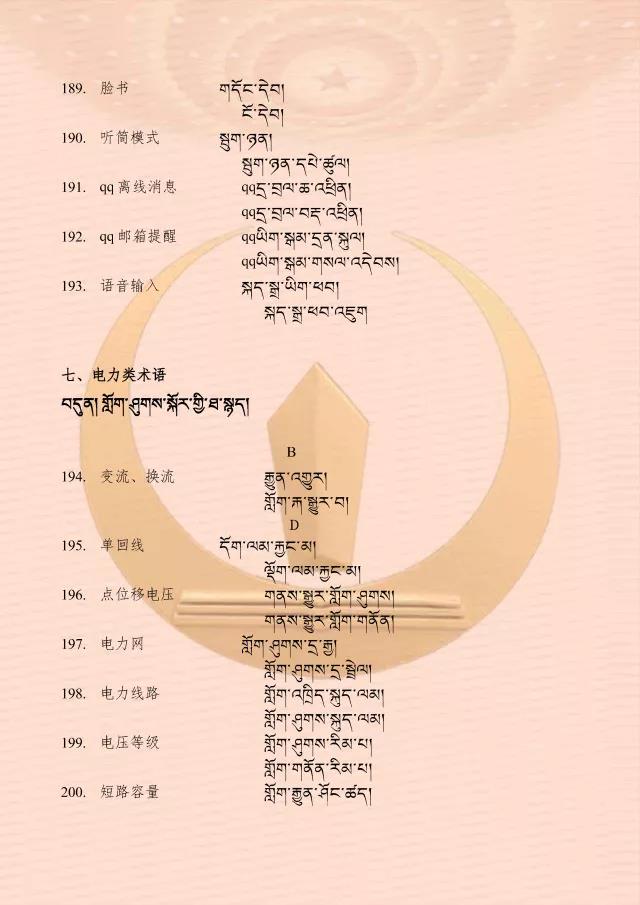 189. 脸书 གདོང་དེབ།
ངོ་དེབ།
190. 听筒模式 སྦུག་ཉན།
སྦུག་ཉན་དཔེ་ཚུལ།
191. qq 离线消息 qqདྲ་བྲལ་ཆ་འཕྲིན།
qqདྲ་བྲལ་བརྡ་འཕྲིན།
192. qq 邮箱提醒 qqཡིག་སྒམ་དྲན་སྐུལ།
qqཡིག་སྒམ་གསལ་འདེབས།
193. 语音输入 སྐད་སྒྲ་ཡིག་ཕབ།
སྐད་སྒྲ་ཕབ་འཇུག
七、电力类术语
བདུན། གློག་ཤུགས་སྐོར་གྱི་ཐ་སྙད།
B
194. 变流、换流 རྒྱུན་འགྱུར།
གློག་རྐ་སྒྱུར་བ།
D
195. 单回线 དོག་ལམ་རྐྱང་མ།
ལྡོག་ལམ་རྐྱང་མ།
196. 点位移电压 གནས་སྒྱུར་གློག་ཤུགས།
གནས་སྒྱུར་གློག་གནོན།
197. 电力网 གློག་ཤུགས་དྲ་རྒྱ།
གློག་ཤུགས་དྲ་སྦྲེལ།
198. 电力线路 གློག་འཁྲིད་སྐུད་ལམ།
གློག་ཤུགས་སྐུད་ལམ།
199. 电压等级 གློག་ཤུགས་རིམ་པ།
གློག་གནོན་རིམ་པ།
200. 短路容量 གློག་རྒྱུན་ཤོང་ཚད།